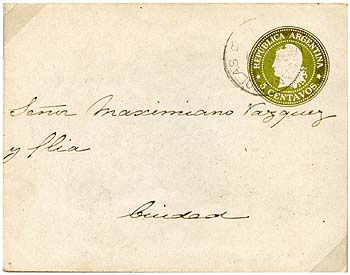 REPUBLICA ARGENTINA
5 CENTAVOS
Señor Maximiano Vazquez
y flia
Ciudad